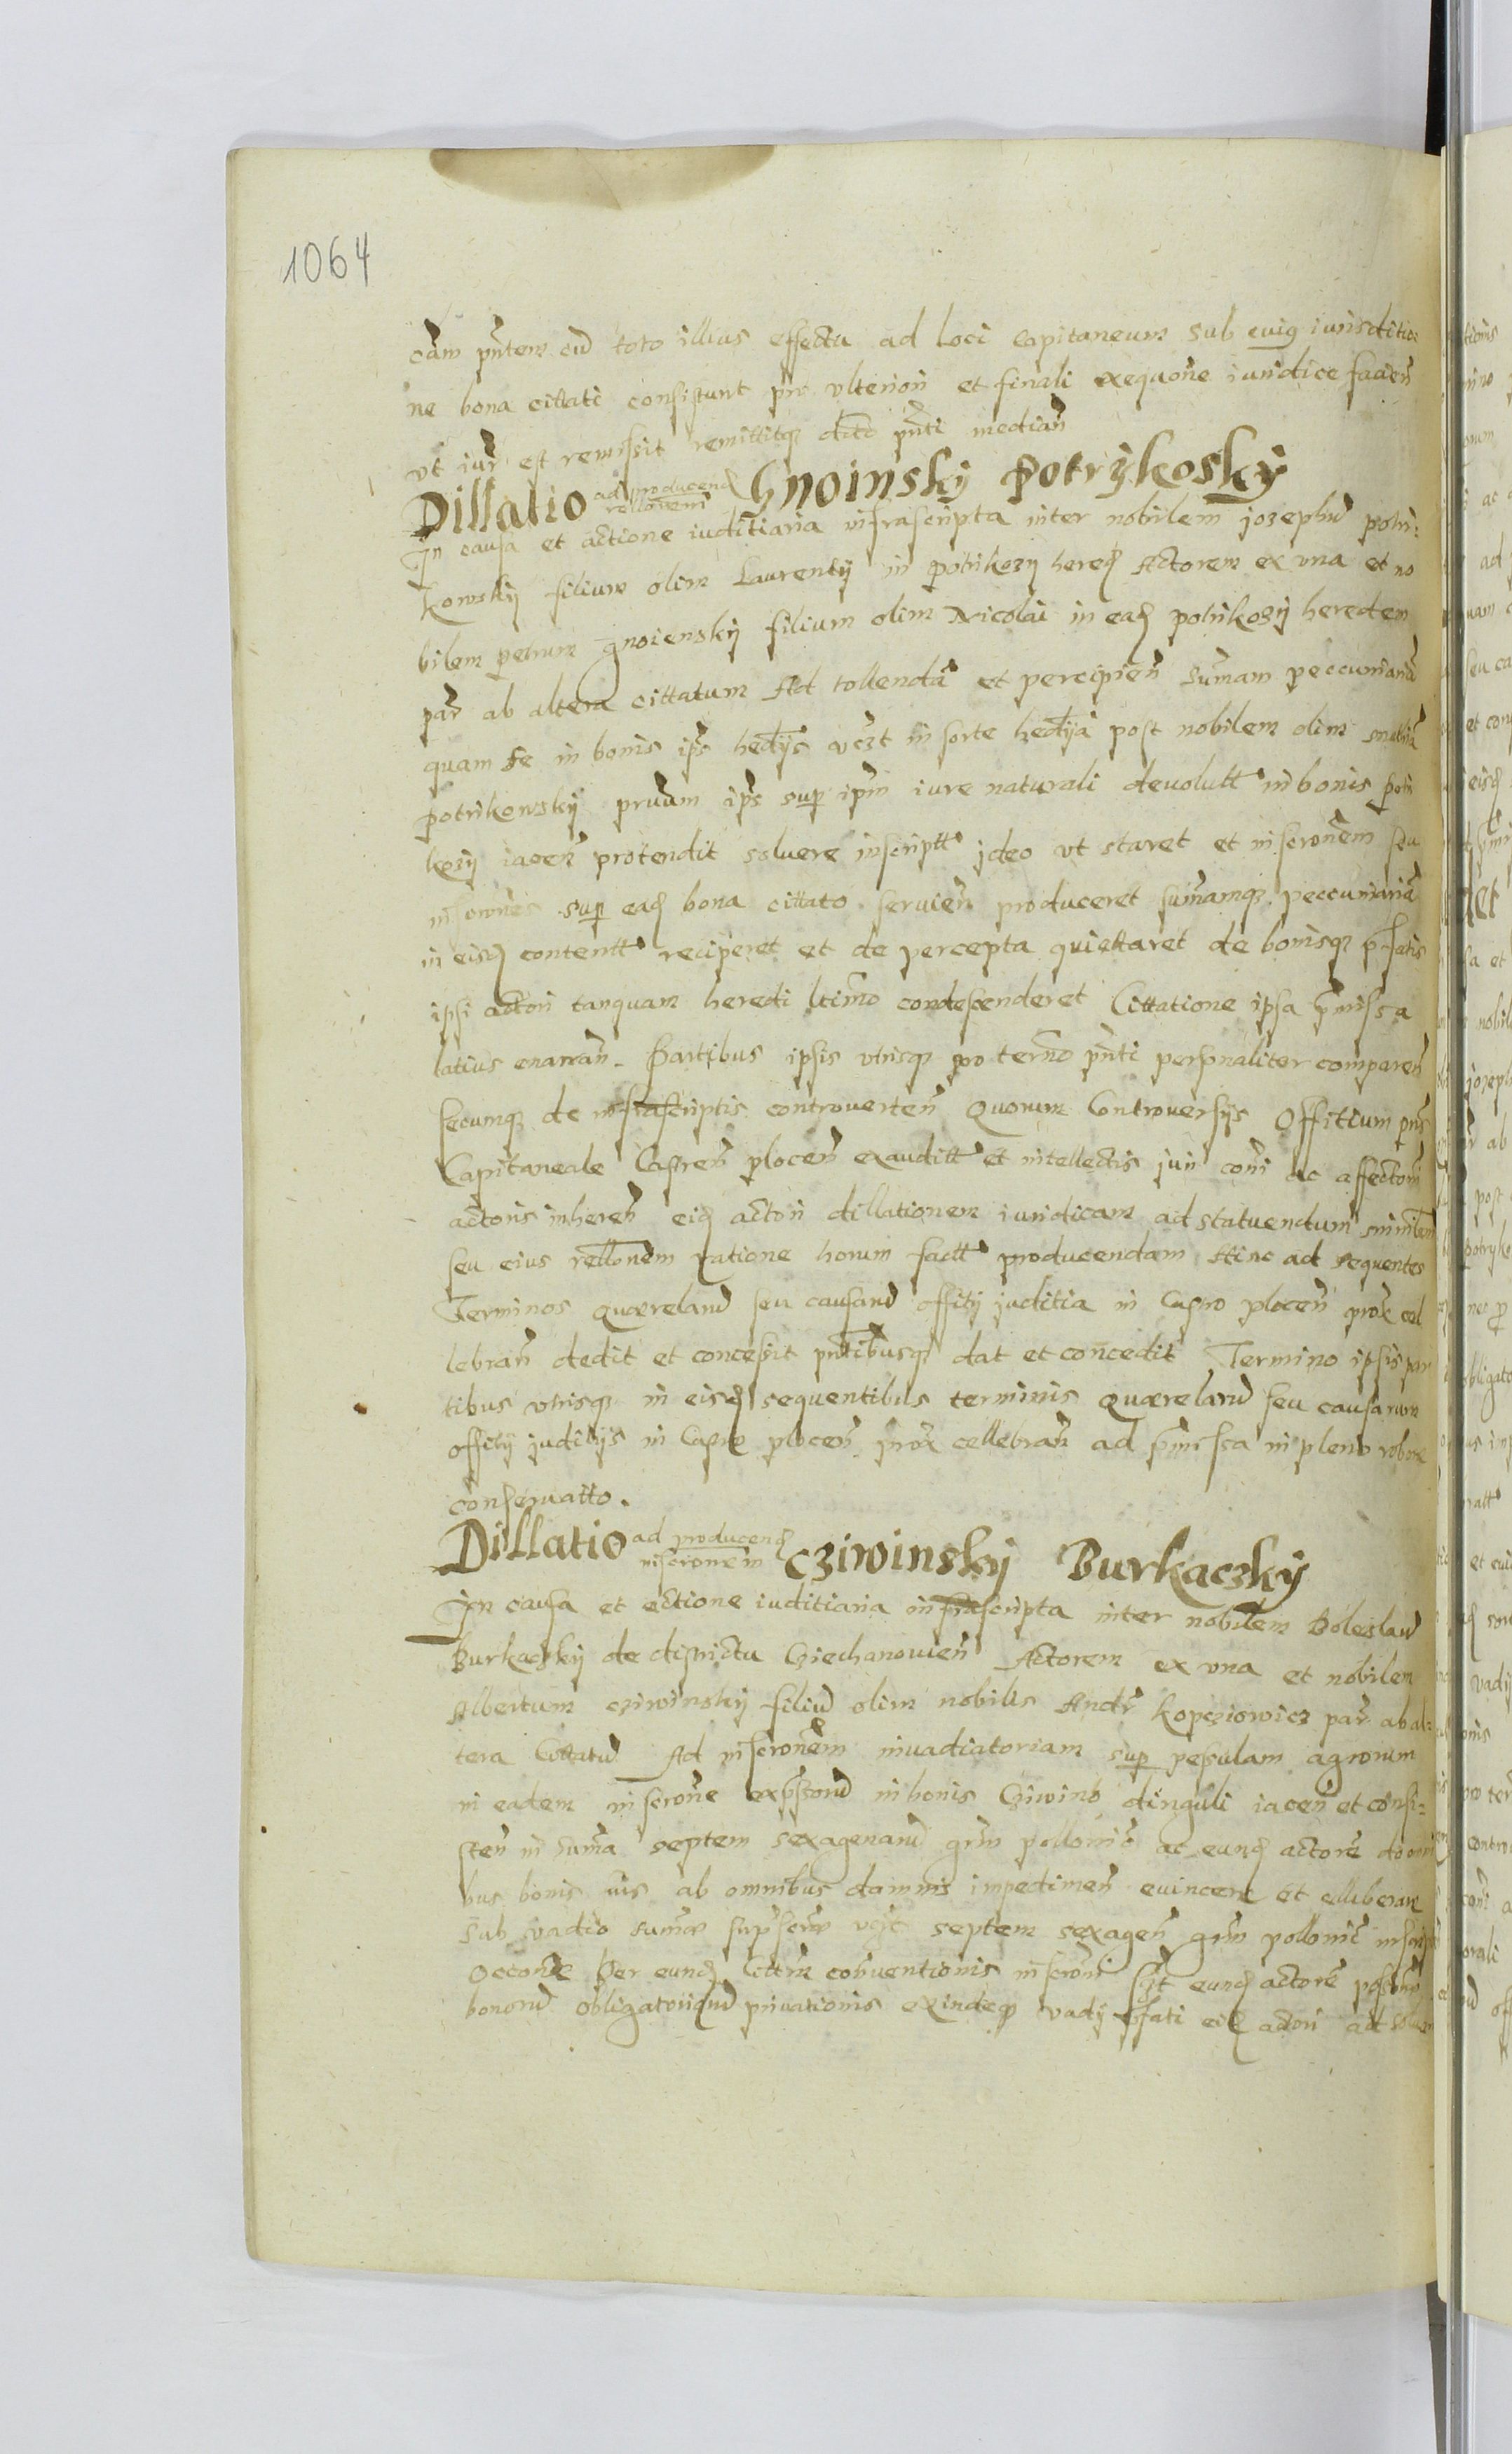 1064
cam pñtem cũ toto illius effectu ad loci Capitaneum sub cuius iurisditio:
ne bona cittati consistunt pro vlteriori et finali exequoñe iuridice facieñ
vt iuř est remisit remittitq dcto pñti median̄
Dillatio ad producend rellonem Gnoinskÿ Potrÿkoskÿ
In causa et actione iuditiaria infrascripta inter nobilem jozephũ potri:
kowskÿ filium olim Laurentÿ in Potrikozÿ hered Actorem ex vna et no
bilem petrum gnoienskÿ filium olim Nicolai in ead potrikozÿ heredem
pař ab altera cittatum Ad tollendā et percipień sum̃am peccuniariā
quam se in bonis ip̃s hedÿs vczt in sorte hedÿa post nobilem olim
potrikowskÿ pruum ip̃s sup ip̃m iure naturali devolutt in bonis potri
kozÿ iaceñ protendit soluere inscriptt jdeo vt staret et inscroñem seu
inscroñes sup ead bona cittato servieñ produceret sum̃amq peccuniariā
in eisd contentt reciperet et de percepta quiettaret de bonisq p̃fatis
ipsi actori tanquam heredi ltimo condescenderet Cittatione ipsa p̃missa
latius enarrañ. Partibus ipsis vtrisq pro terño pñti personaliter compareñ
secumq de infrascriptis controverteñ Quorum Controversÿs Offitium pñs
Capitaneale Castreñ ploceñ exauditt et intellectis juri coñi ac affectoñi
actoris inhereñ eid actori dillationem iuridicam ad statuendum
seu eius rellonem ratione horum factt producendam Hinc ad sequentes
Terminos Quærelarũ seu causarũ offitÿ juditia in Castro ploceñ prox cel
lebrañ dedit et concessit pñtibusq dat et concedit Termino ipsis par
tibus vtrisq in eisd sequentibus terminis Quærelarũ seu causarum
offitÿ juditÿs in Castro ploceñ prox cellebrañ ad p̃missa in pleno robore
conservatto.
Dillatio ad producend inscronem Cziwinskÿ Burkaczkÿ
In causa et actione iuditiaria infrascripta inter nobilem Boleslaũ
Burkaczkÿ de districtu Cziechanovieñ Actorem ex vna et nobilem
Albertum cziwinskÿ filiũ olim nobilis Andř kopcziowicz pař ab al:
tera Cittatũ Ad inscroñem invadiatoriam sup peßulam agrorum
in eadem inscroñe expßorũ in bonis Cziwino dinguli iaceñ et consi:
steñ in sum̃a septem sexagenarũ grm̃ polloniĉ ac eund actorẽ do omni
bus bonis uis ab omnibus damnis impedimeñ euincere et elliberare
sub vadio sum̃æ sup̃scrtæ vczt septem sexageñ grm̃ polloniĉ
occoñe per eund Cittm̃ conventionis inscroñi eund actorẽ
bonorũ obligatoriorũ privationis exindeq vadÿ p̃fati eid actori ad